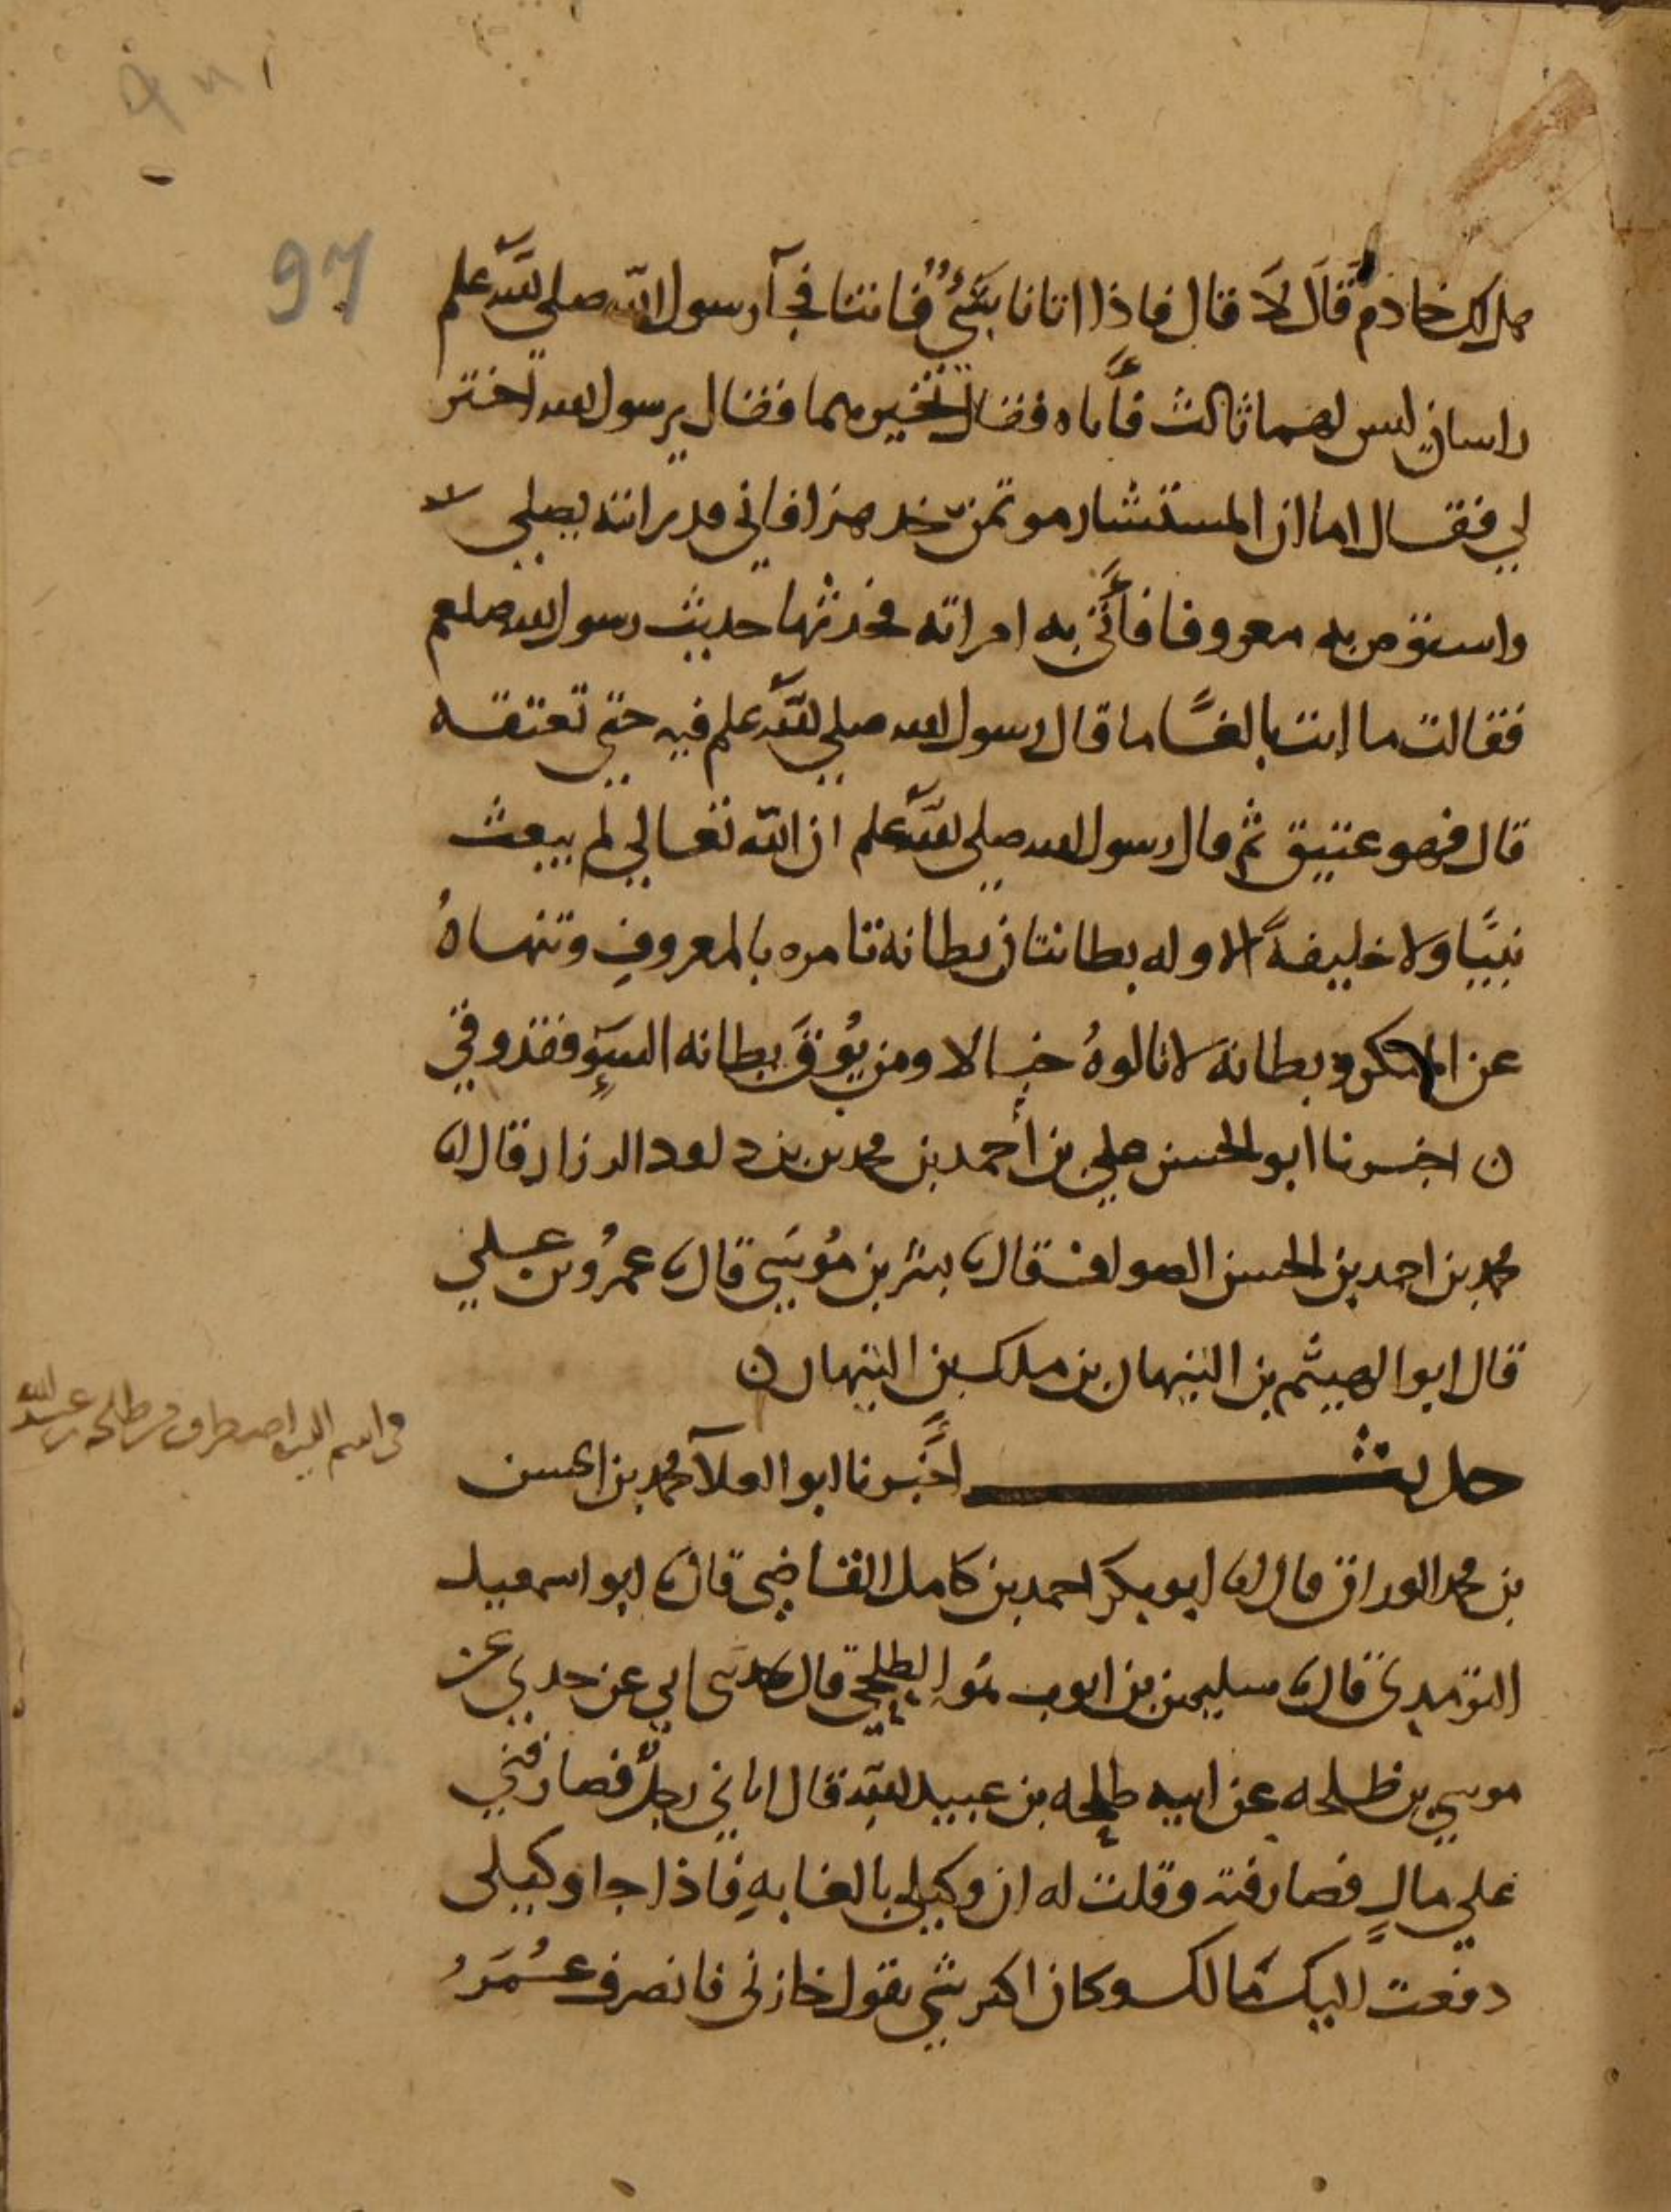 97
هل لك خادمٌ قَالَ لَا قال فاذا اتانا بشئٌ فاتنا فجآ رسول الله صلى لله علم
راسان ليس لهما ثالث فأتاه فقال تخير منهما فقال يرسول الله اختر
لي فقال اما ان المستشار موتمن خد هذا فاني قد راته يصلي
واستوص به معروفا فأتى به امراته فحدثها حديث رسول الله صلعم
فقالت ما انت بالغًا ما قال رسول الله صلي لله علم فيه حتي تعتقه
قال فهو عتيق ثم قال رسول الله صلي لله علم ان الله تعالي لم يبعث
نبيًا ولا خليفةً الا وله بطانتان بطانة تامره بالمعروفِ وتنهاهُ
عن المنكر وبطانة لا تالوهُ خبالا ومن يُوقَ بطانه السوٓءِ فقد وقي
ن اخبرنا ابو الحسن علي بن أحمد بن محمد بن داود الرزاز قال انا
محمد بن احمد بن الحسن الصواف قال نا بشر بن مُوسَي قال نا عمرُو بن علي
قال ابو الهيثم بن التيهان بن ملك بن التيهان ن
حديث اخبرنا ابو العلآ محمد بن الحسن
بن محمد الوراق قال انا ابو بكر احمد بن كامل القاضِي قال نا ابو اسمعيل
الترمدى قال نا سليمن بن ايوب الطلحي قال حدثني ابي عن جدي عن
موسي بن طلحه عن ابيه طلحه بن عبيد الله قال اتاني رجلٌ فصارفني
علي مالٍ فصارفته وقلت له ان وكيلي بالغابهِ فاذا جا وكيلى
دفعت اليك مَالك وكان اكثر شي يقول خازنى فانصرف عُمَرُ
في اسم الذي اصطرف من طلحة بن عبيد الله